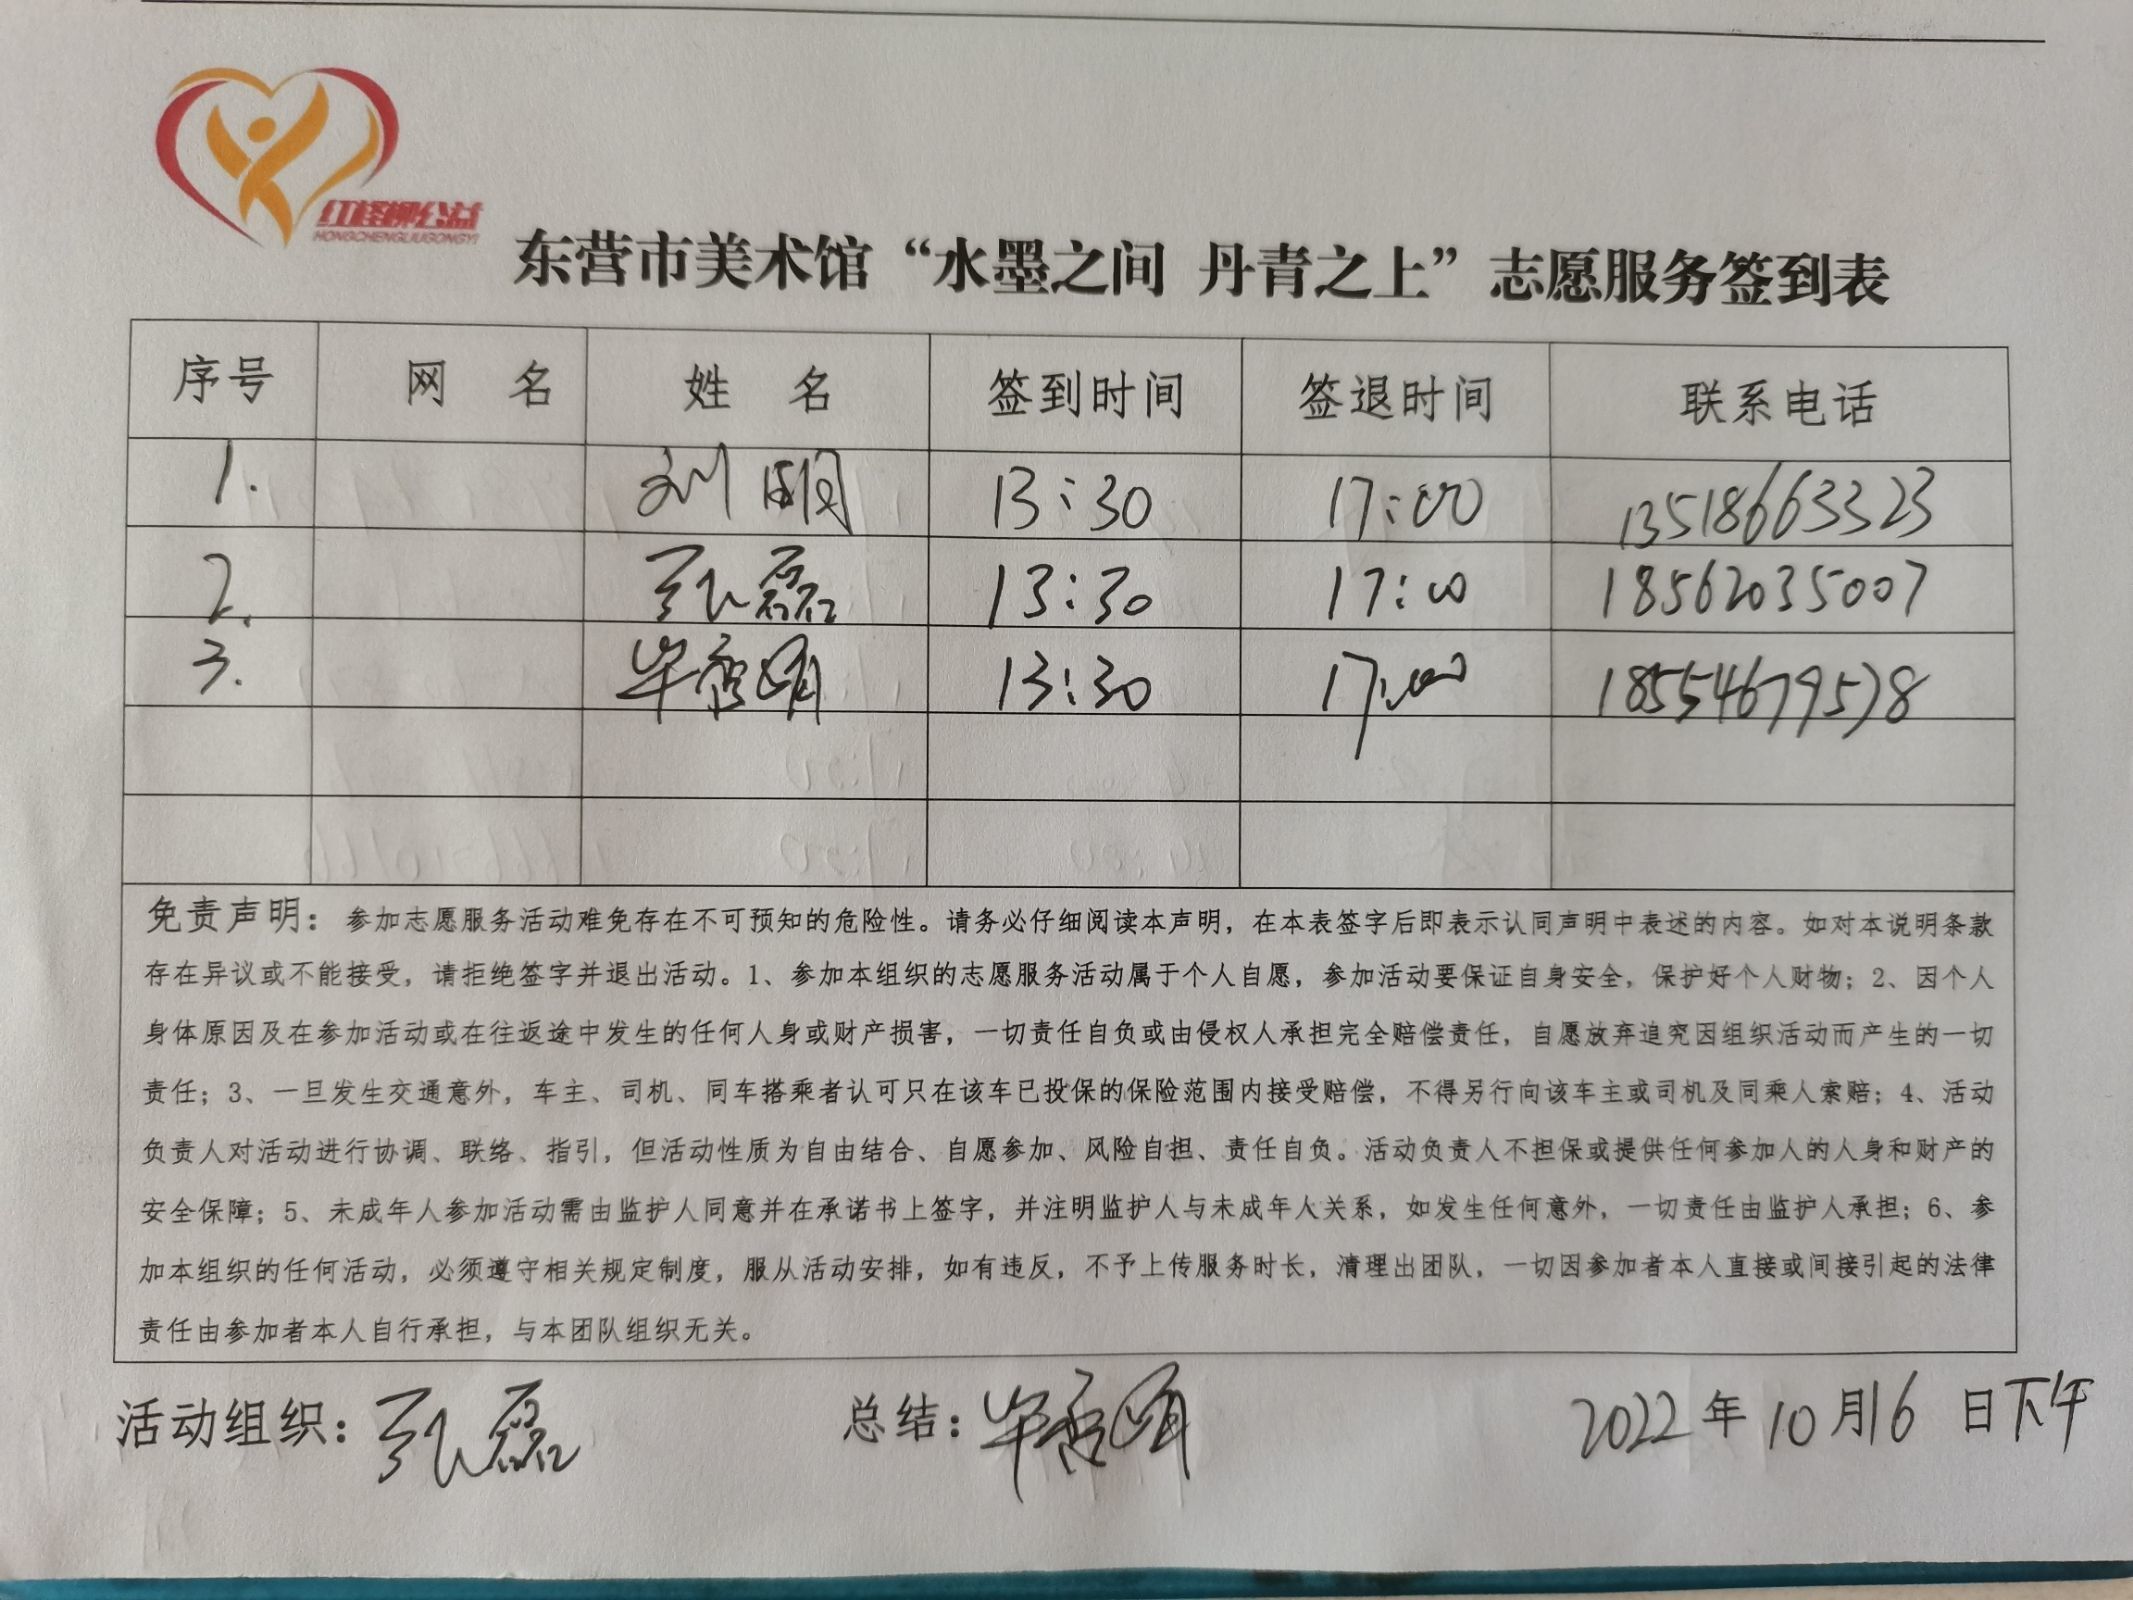 红柽柳公益
HONGCHENGLIUGONGYI
东营市美术馆“水墨之间 丹青之上”志愿服务签到表
序号 网 名 姓 名 签到时间 签退时间 联系电话
1. 刘 13:30 17:00 13518663323
2. 张磊 13:30 17:00 18562035007
3. 13:30 17:00 18554679578
免责声明：参加志愿服务活动难免存在不可预知的危险性。请务必仔细阅读本声明，在本表签字后即表示认同声明中表述的内容。如对本说明条款
存在异议或不能接受，请拒绝签字并退出活动。1、参加本组织的志愿服务活动属于个人自愿，参加活动要保证自身安全，保护好个人财物；2、因个人
身体原因及在参加活动或在往返途中发生的任何人身或财产损害，一切责任自负或由侵权人承担完全赔偿责任，自愿放弃追究因组织活动而产生的一切
责任；3、一旦发生交通意外，车主、司机、同车搭乘者认可只在该车已投保的保险范围内接受赔偿，不得另行向该车主或司机及同乘人索赔；4、活动
负责人对活动进行协调、联络、指引，但活动性质为自由结合、自愿参加、风险自担、责任自负。活动负责人不担保或提供任何参加人的人身和财产的
安全保障；5、未成年人参加活动需由监护人同意并在承诺书上签字，并注明监护人与未成年人关系，如发生任何意外，一切责任由监护人承担；6、参
加本组织的任何活动，必须遵守相关规定制度，服从活动安排，如有违反，不予上传服务时长，清理出团队，一切因参加者本人直接或间接引起的法律
责任由参加者本人自行承担，与本团队组织无关。
活动组织：张磊 总结： 2022年10月16日下午